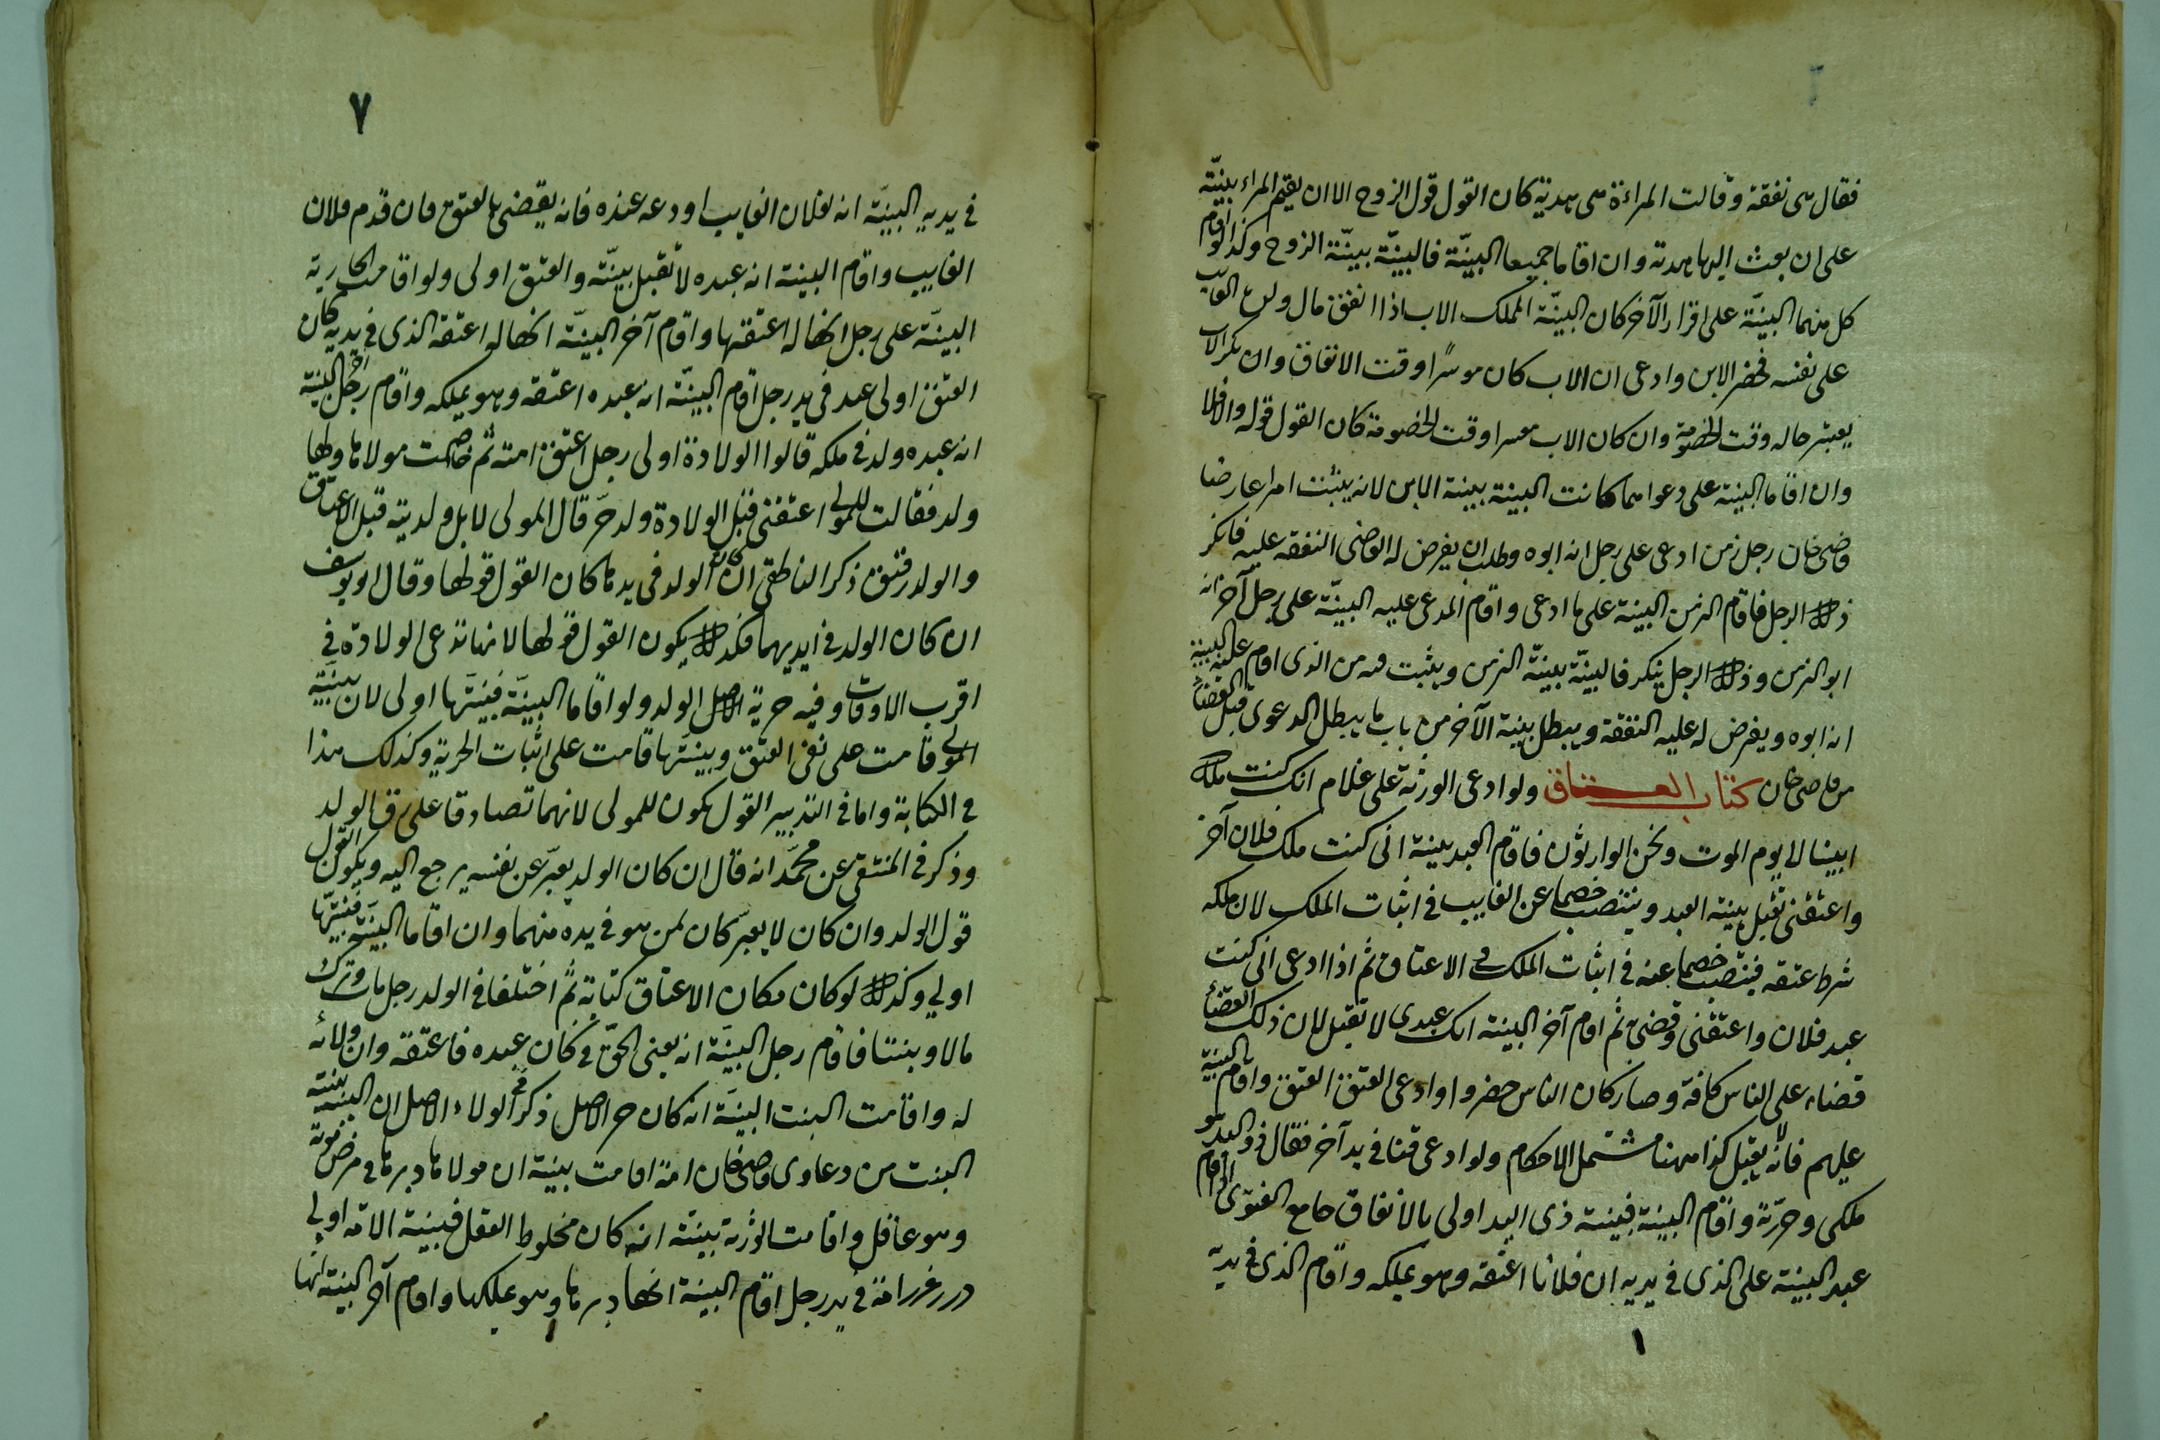 فقال هى نفقة وقالت المراءة هى هدية كان القول قول الزوج الا ان يقيم المراء بينة
على ان بعث اليها هدية وان اقاما جميعا البينة فالبينة بينة الزوج وكذا لو اقام
كل منهما البينة على اقرار الآخر كان البينة الملك الاب اذا انفق مال ولده الغايب
على نفسه فحضر الابن وادعى ان الاب كان موسرا وقت الانفاق وان نكر الاب
يعتبر حاله وقت الخصومة وان كان الاب معسرا وقت الخصومة كان القول قوله والا فلا
وان اقاما البينة على دعواهما كانت البينة بينة الابن لانه يثبت امرا عارضا
قاضى خان رجل زمن ادعى على رجل انه ابوه وطلب ان يفرض له القاضى النفقة عليه فانكر
ذلك الرجل فاقام الزمن البينة على ما ادعى واقام المدعى عليه البينة على رجل آخر انه
ابو الزمن وذلك الرجل ينكر فالبينة بينة الزمن ويثبت من الذى اقام عليه البينة
انه ابوه ويفرض له عليه النفقة ويبطل بينة الآخر من باب ما يبطل الدعوى قبل القضاء
من قاضى خان كتاب العتاق ولو ادعى الورثة على غلام انك كنت ملك
ابينا لا يوم الموت ونحن الوارثون فاقام العبد بينة انى كنت ملك فلان آخر
واعتقنى تقبل بينة العبد وينتصب خصما عن الغايب فى اثبات الملك لان ملكه
شرط عتقه فينتصب خصما عنه فى اثبات الملك فى الاعتاق ثم اذا ادعى انى كنت
عبد فلان واعتقنى وقضى به ثم اقام آخر البينة انك عبدى لا تقبل لان ذلك القضاء
قضاء على الناس كافة وصار كان الناس حضروا وادعى العتق العتق واقام البينة
عليهم فانه لا يقبل كذا ههنا مشتمل الاحكام ولو ادعى قنا فى يد آخر فقال ذو اليد هو
ملكى وحررته واقام البينة فبينة ذى اليد اولى بالاتفاق جامع الفتوى اقام
عبد البينة على الذى فى يديه ان فلانا اعتقه وهو يملكه واقام الذى فى يديه
٧
فى يديه البينة انه لفلان الغايب اودعه عنده فانه يقضى بالعتق فان قدم فلان
الغايب واقام البينة انه عبده لا تقبل بينة والعتق اولى ولو اقامت الجارية
البينة على رجل انها له اعتقها واقام آخر البينة انها له اعتقه الذى فى يديه كان
العتق اولى عبد فى يد رجل اقام البينة انه عبده اعتقه وهو يملكه واقام رجل آخر البينة
انه عبده ولد فى ملكه قالوا الولادة اولى رجل اعتق امته ثم خاصمت مولاها ولها
ولد فقالت للمولى اعتقتنى قبل الولادة وولد حر قال المولى لا بل ولديته قبل الاعتاق
والولد رقيق ذكر الناطفى ان كان الولد فى يدها كان القول قولها وقال ابو يوسف
ان كان الولد فى ايديهما فكذلك يكون القول قولها لانها تدعى الولادة فى
اقرب الاوقات وفيه حرية الاصل الولد ولو اقاما البينة فبينتها اولى لان بينة
المولى قامت على نفى العتق وبينتها قامت على اثبات الحرية وكذلك هذا
فى الكتابة واما فى التدبير القول يكون للمولى لانهما تصادقا على رق الولد
وذكر فى المنتقى عن محمد انه قال ان كان الولد يعبر عن نفسه يرجع اليه ويكون القول
قول الولد وان كان لا يعبر كان لمن هو فى يده منهما وان اقاما البينة فبينتها
اولى وكذلك لو كان مكان الاعتاق كتابة ثم اختلفا فى الولد رجل مات وترك
مالا وبنتا فاقام رجل البينة انه يعنى الحق كان عبده فاعتقه وان ولائه
له واقامت البنت البينة انه كان حر الاصل ذكر فى الولاء الاصل ان البينة بينة
البنت من دعاوى قاضى خان امة اقامت بينة ان مولاها دبرها فى مرض موته
وهو عاقل واقامت الورثة بينة انه كان مخلوط العقل فبينة الامة اولى
درر غرر امة فى يد رجل اقام البينة انها دبرها وهو يملكها واقام آخر البينة انها